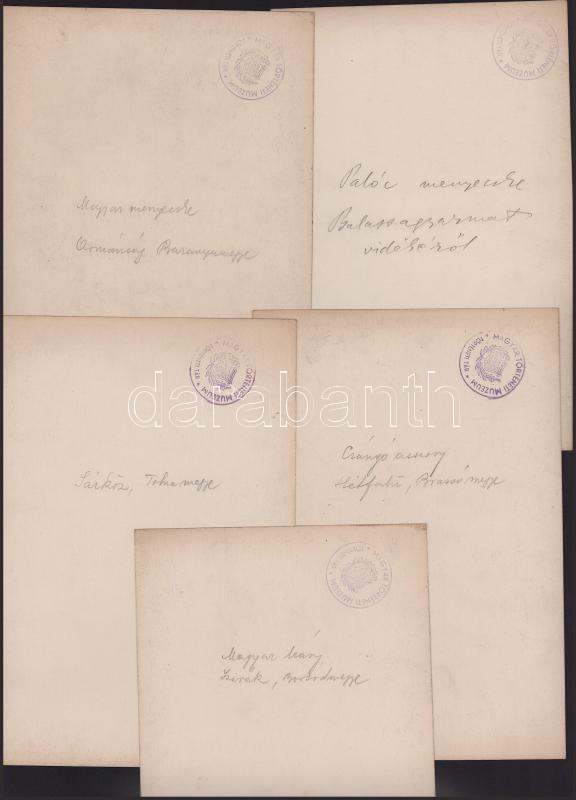 MAGYAR TÖRTÉNETI MUZEUM • Történeti tár •
Magyar menyecske
Ormánság Baranyamegye
MAGYAR TÖRTÉNETI MUZEUM • Történeti tár •
Palóc menyecske
Balassagyarmat
vidékéről
MAGYAR TÖRTÉNETI MUZEUM • Történeti tár •
Sárköz, Tolnamegye
MAGYAR TÖRTÉNETI MUZEUM • Történeti tár •
Csángó asszony
Hétfalu, Brassó megye
MAGYAR TÖRTÉNETI MUZEUM • Történeti tár •
Magyar leány
Szirák,
darabanth